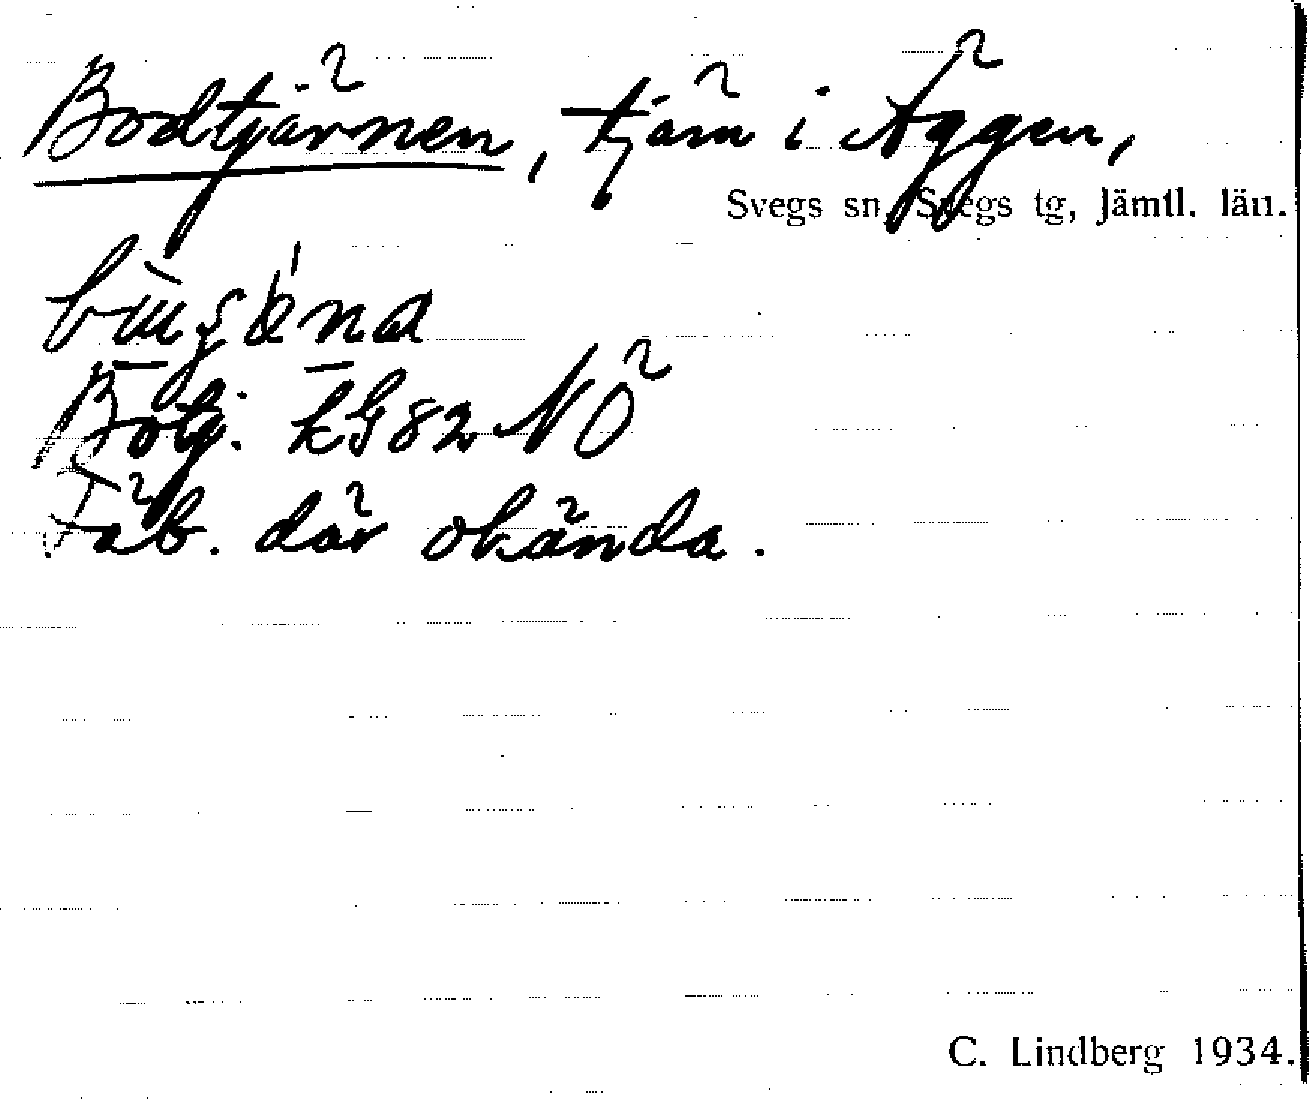 Bodtjärnen, tjärn i Äggen,
Svegs sn, Svegs tg, Jämtl. län.
Botj. kG82 NÖ
Fäb. där okända.
C. Lindberg 1934.